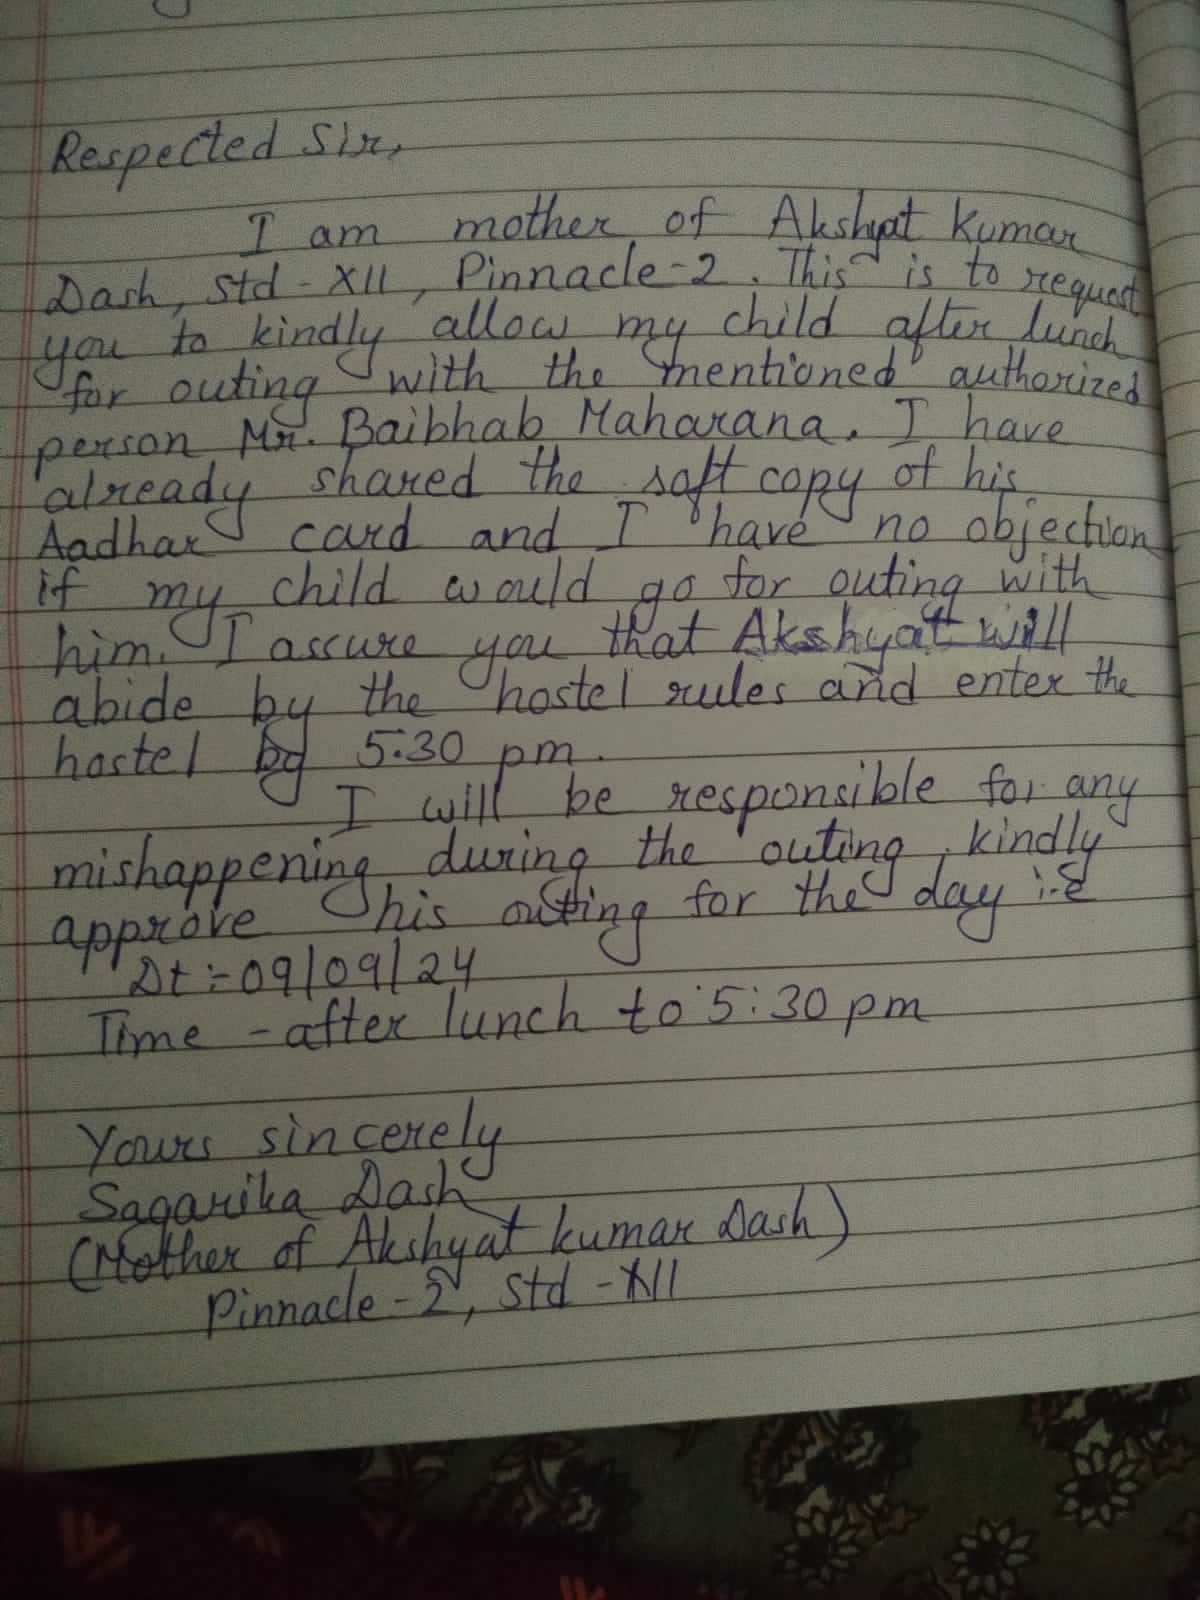 Respected Sir,
I am mother of Akshyat Kumar
Dash, Std - XII, Pinnacle-2. This is to request
you to kindly allow my child after lunch
for outing with the mentioned authorized
person Mr. Baibhab Maharana. I have
already shared the soft copy of his
Aadhar card and I have no objection
if my child would go for outing with
him. I assure you that Akshyat will
abide by the hostel rules and enter the
hostel by 5:30 pm.
I will be responsible for any
mishappening during the outing, kindly
approve his outing for the day i.e
Dt :- 09/09/24
Time - after lunch to 5:30 pm
Yours sincerely
Sagarika Dash
(Mother of Akshyat kumar Dash)
Pinnacle - 2, Std - XII